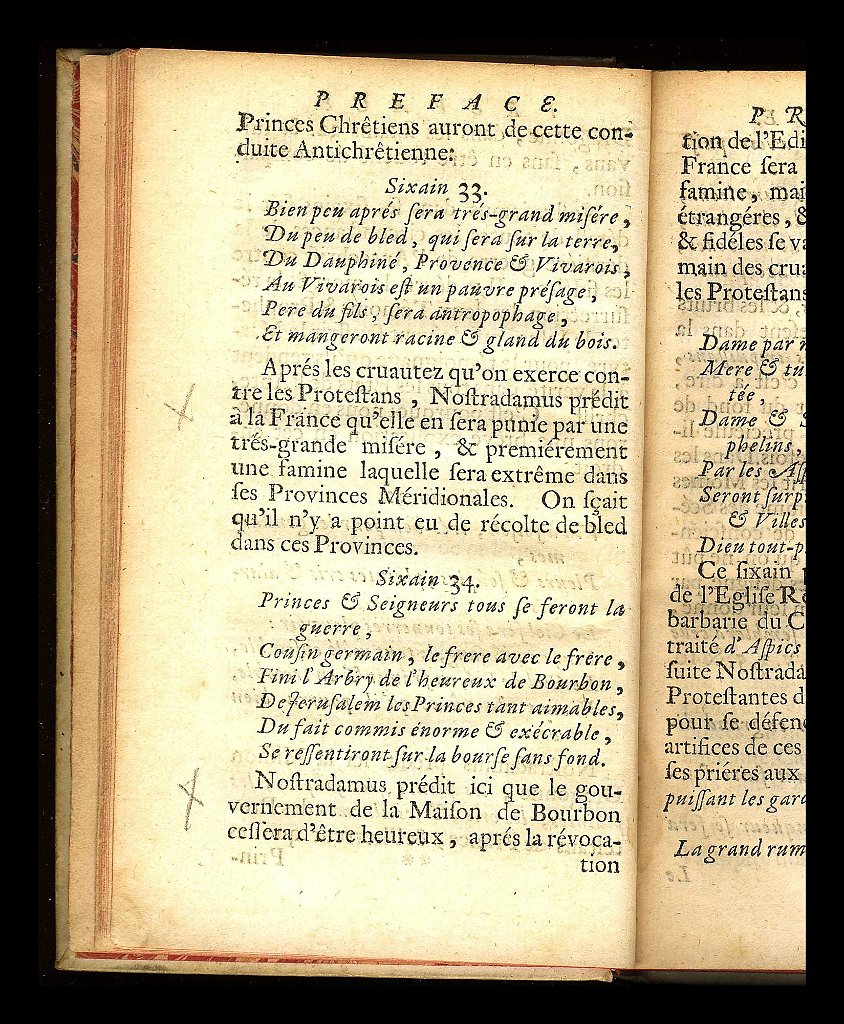 P R E F A C E.
Princes Chrêtiens auront de cette con-
duite Antichrêtienne:
Sixain 33.
Bien peu aprés ſera trés-grand miſére,
Du peu de bled, qui ſera ſur la terre,
Du Dauphiné, Provence & Vivarois,
Au Vivarois eſt un pauvre préſage,
Pere du fils, ſera antropophage,
Et mangeront racine & gland du bois.
Aprés les cruautez qu'on exerce con-
tre les Proteſtans, Noſtradamus prédit
à la France qu'elle en ſera punie par une
trés-grande miſére, & premiérement
une famine laquelle ſera extrême dans
ſes Provinces Méridionales. On ſçait
qu'il n'y a point eu de récolte de bled
dans ces Provinces.
Sixain 34.
Princes & Seigneurs tous ſe feront la
guerre,
Couſin germain, le frere avec le frére,
Fini l'Arbry de l'heureux de Bourbon,
De Jeruſalem les Princes tant aimables,
Du fait commis énorme & exécrable,
Se reſſentiront ſur la bourſe ſans fond.
Noſtradamus prédit ici que le gou-
vernement de la Maiſon de Bourbon
ceſſera d'être heureux, aprés la révoca-
tion
P R
tion de l'Edi
France ſera
famine, mai
étrangéres, &
& fidéles ſe va
main des crua
les Proteſtans
Dame par m
Mere & tu
tée,
Dame & S
phelins,
Par les Aſp
Seront ſurp
& Villes
Dieu tout-p
Ce ſixain
de l'Egliſe R
barbarie du C
traité d'Aſpics
ſuite Noſtrada
Proteſtantes d
pour ſe défen
artifices de ces
ſes priéres aux
puiſſant les gar
La grand rum